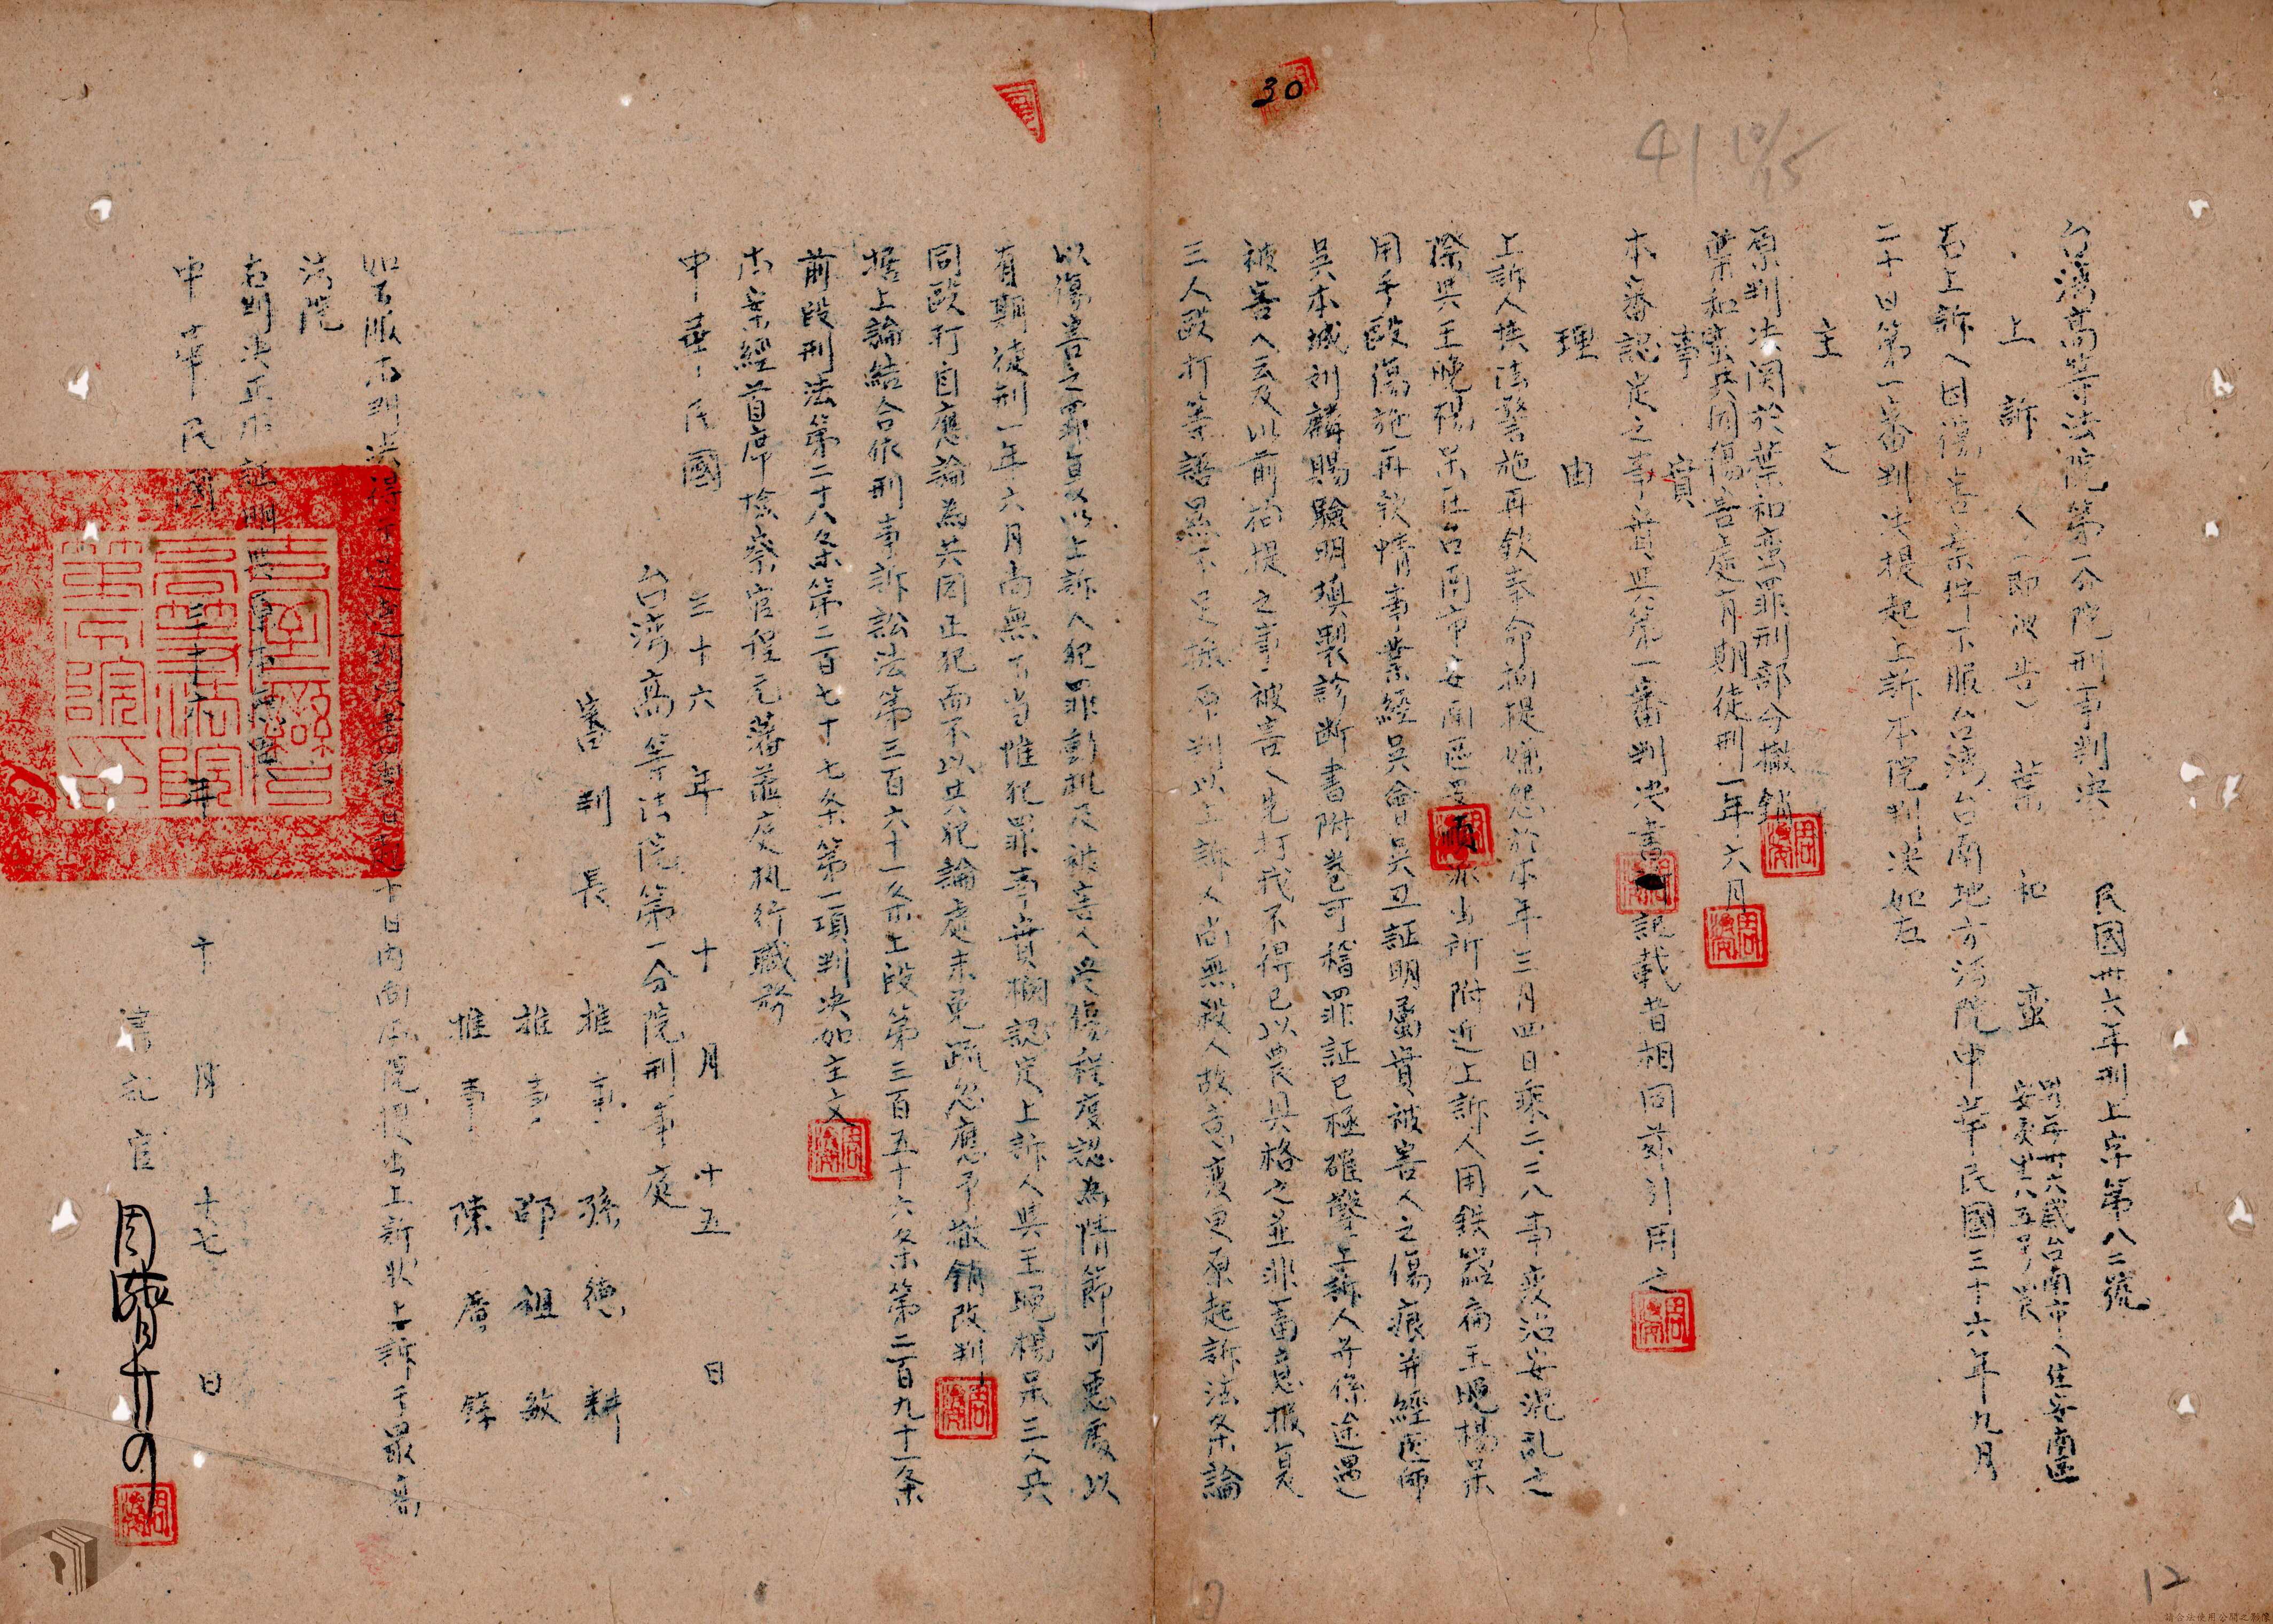 30
41 10/15
台湾高等法院第一分院刑事判決
民國卅六年刑上字第八二號
上訴人（即被告）葉和蛮
男年卅六歲台南市人住安南區
右上訴人因傷害案件不服台湾台南地方法院中華民國三十六年九月
二十日第一審判決提起上訴本院判決如左
主文
原判決関於葉和蛮罪刑部分撤銷
葉和蛮共同傷害處有期徒刑一年六月
事實
本審認定之事實與第一審判決書記載者相同茲引用之
理由
上訴人挾法警施再欽奉命拘提嫌怨於本年三月四日乘二二八事变治安混乱之
際與王晚楊呆在台南市安南區 順 派出所附近上訴人用鉄器 王晚楊呆
用手毆傷施再欽情事業經吳會吳丑証明屬實被害人之傷痕并經医师
吳本城刘麟賜驗明填製診断書附卷可稽罪証已極確鑿上訴人并係途遇
被害人云及以前拘提之事被害人先打我不得已以農具格之並非蓄意報复
三人毆打等語显不足採原判以上訴人尚無殺人故意变更原起訴法条論
以傷害之罪 以上訴人犯罪動机及被害人受傷程度認為情節可惡處以
有期徒刑一年六月尚無不当惟犯罪事實欄認定上訴人與王晚楊呆三人共
同毆打自應論為共同正犯而不以共犯論處未免疏忽應予撤銷改判
据上論結合依刑事訴訟法第三百六十一条上段第三百五十六条第二百九十一条
前段刑法第二十八条第二百七十七条第一項判決如主文
本案經首席檢察官程元藩蒞庭执行職務
中華民國三十六年十月十五日
台湾高等法院第一分院刑事庭
審判長推事孫德耕
推事邵祖敏
推事陳 錚
如不服本判決得于送達判決書翌日起十日内向本院提出上訴状上訴于最高
法院
右判決正本証明與原本無異
中華民國三十六年十月十七日
書記官周濟
12